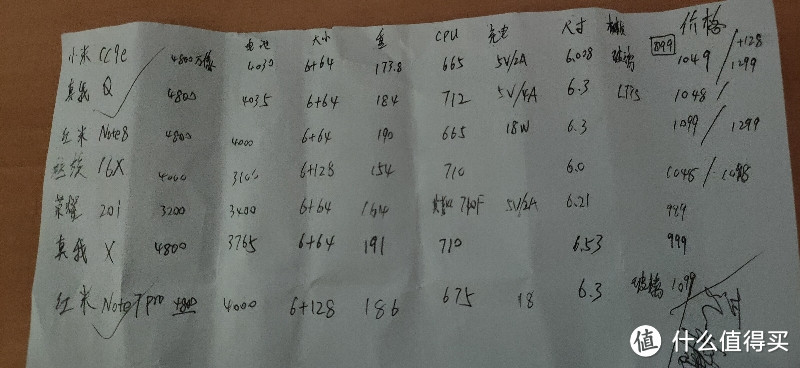 电池 大小 重 CPU 充电 尺寸 价格
小米 CC9e 4800万像 4030 6+64 173.8 665 5V/2A 6.088 玻璃 1049 / +128 1299
真我 Q 4800 4035 6+64 184 712 5V/4A 6.3 1048/
红米 Note8 4800 4000 6+64 190 665 18W 6.3 1099/1299
16X 4000 3100 6+128 154 710 6.0 1048/1098
荣耀 20i 3200 3400 6+64 164 710F 5V/2A 6.21 989
真我 X 4800 3765 6+64 191 710 6.53 999
红米 Note7pro 4800 4000 6+128 186 675 18 6.3 玻璃 1099
值 什么值得买